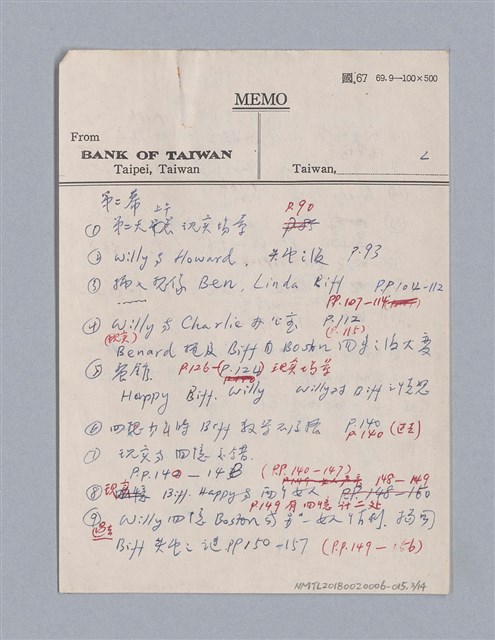 國.67 69.9—100×500
MEMO
From
BANK OF TAIWAN
Taipei, Taiwan
Taiwan,
第二幕 上午
① 第二天 現實場景 P.90
② Willy 与 Howard, P.93
③ 插入 Ben, Linda Biff P.P 104-112
PP.107-114
④ Willy 与 Charlie 办公室 P.112
(現實) (P.115)
Benard 提及 Biff 自 Boston 回来之後大變
⑤ 餐館 P.126-(P.124) 現實場景
Happy Biff. Willy Willy 对 Biff
⑥ 回想 Biff 数学不及格 P.140
P.140 (過去)
⑦ 現实与回憶交錯
P.P.140-148 (P.P. 140-147)
⑧ 現實 Biff. Happy 与两个女人 P.P. 148-160 148-149
P.149 有回憶 廿二处
⑨ Willy 回憶 Boston 一女人
過去
Biff PP150-157 (P.P.149-156)
NMTL20180020006-015.3/14